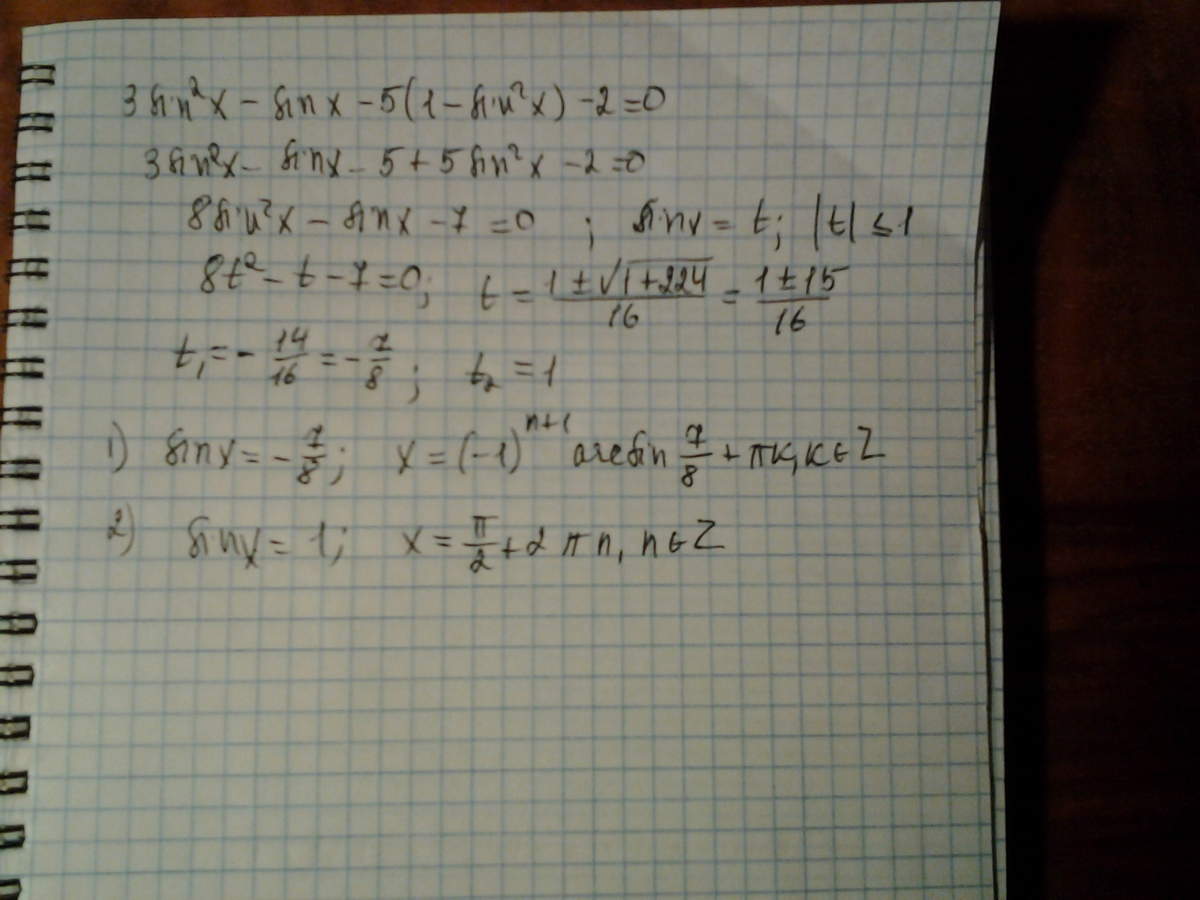 3 sin²x − sin x − 5(1 − sin²x) − 2 = 0
3 sin²x − sin x − 5 + 5 sin²x − 2 = 0
8 sin²x − sin x − 7 = 0 ; sin x = t; |t| ≤ 1
8t² − t − 7 = 0; t = (1 ± √(1+224))/16 = (1 ± 15)/16
t₁ = − 14/16 = − 7/8 ; t₂ = 1
1) sin x = − 7/8 ; x = (−1)ⁿ⁺¹ arcsin 7/8 + πk, k ∈ Z
2) sin x = 1; x = π/2 + 2πn, n ∈ Z